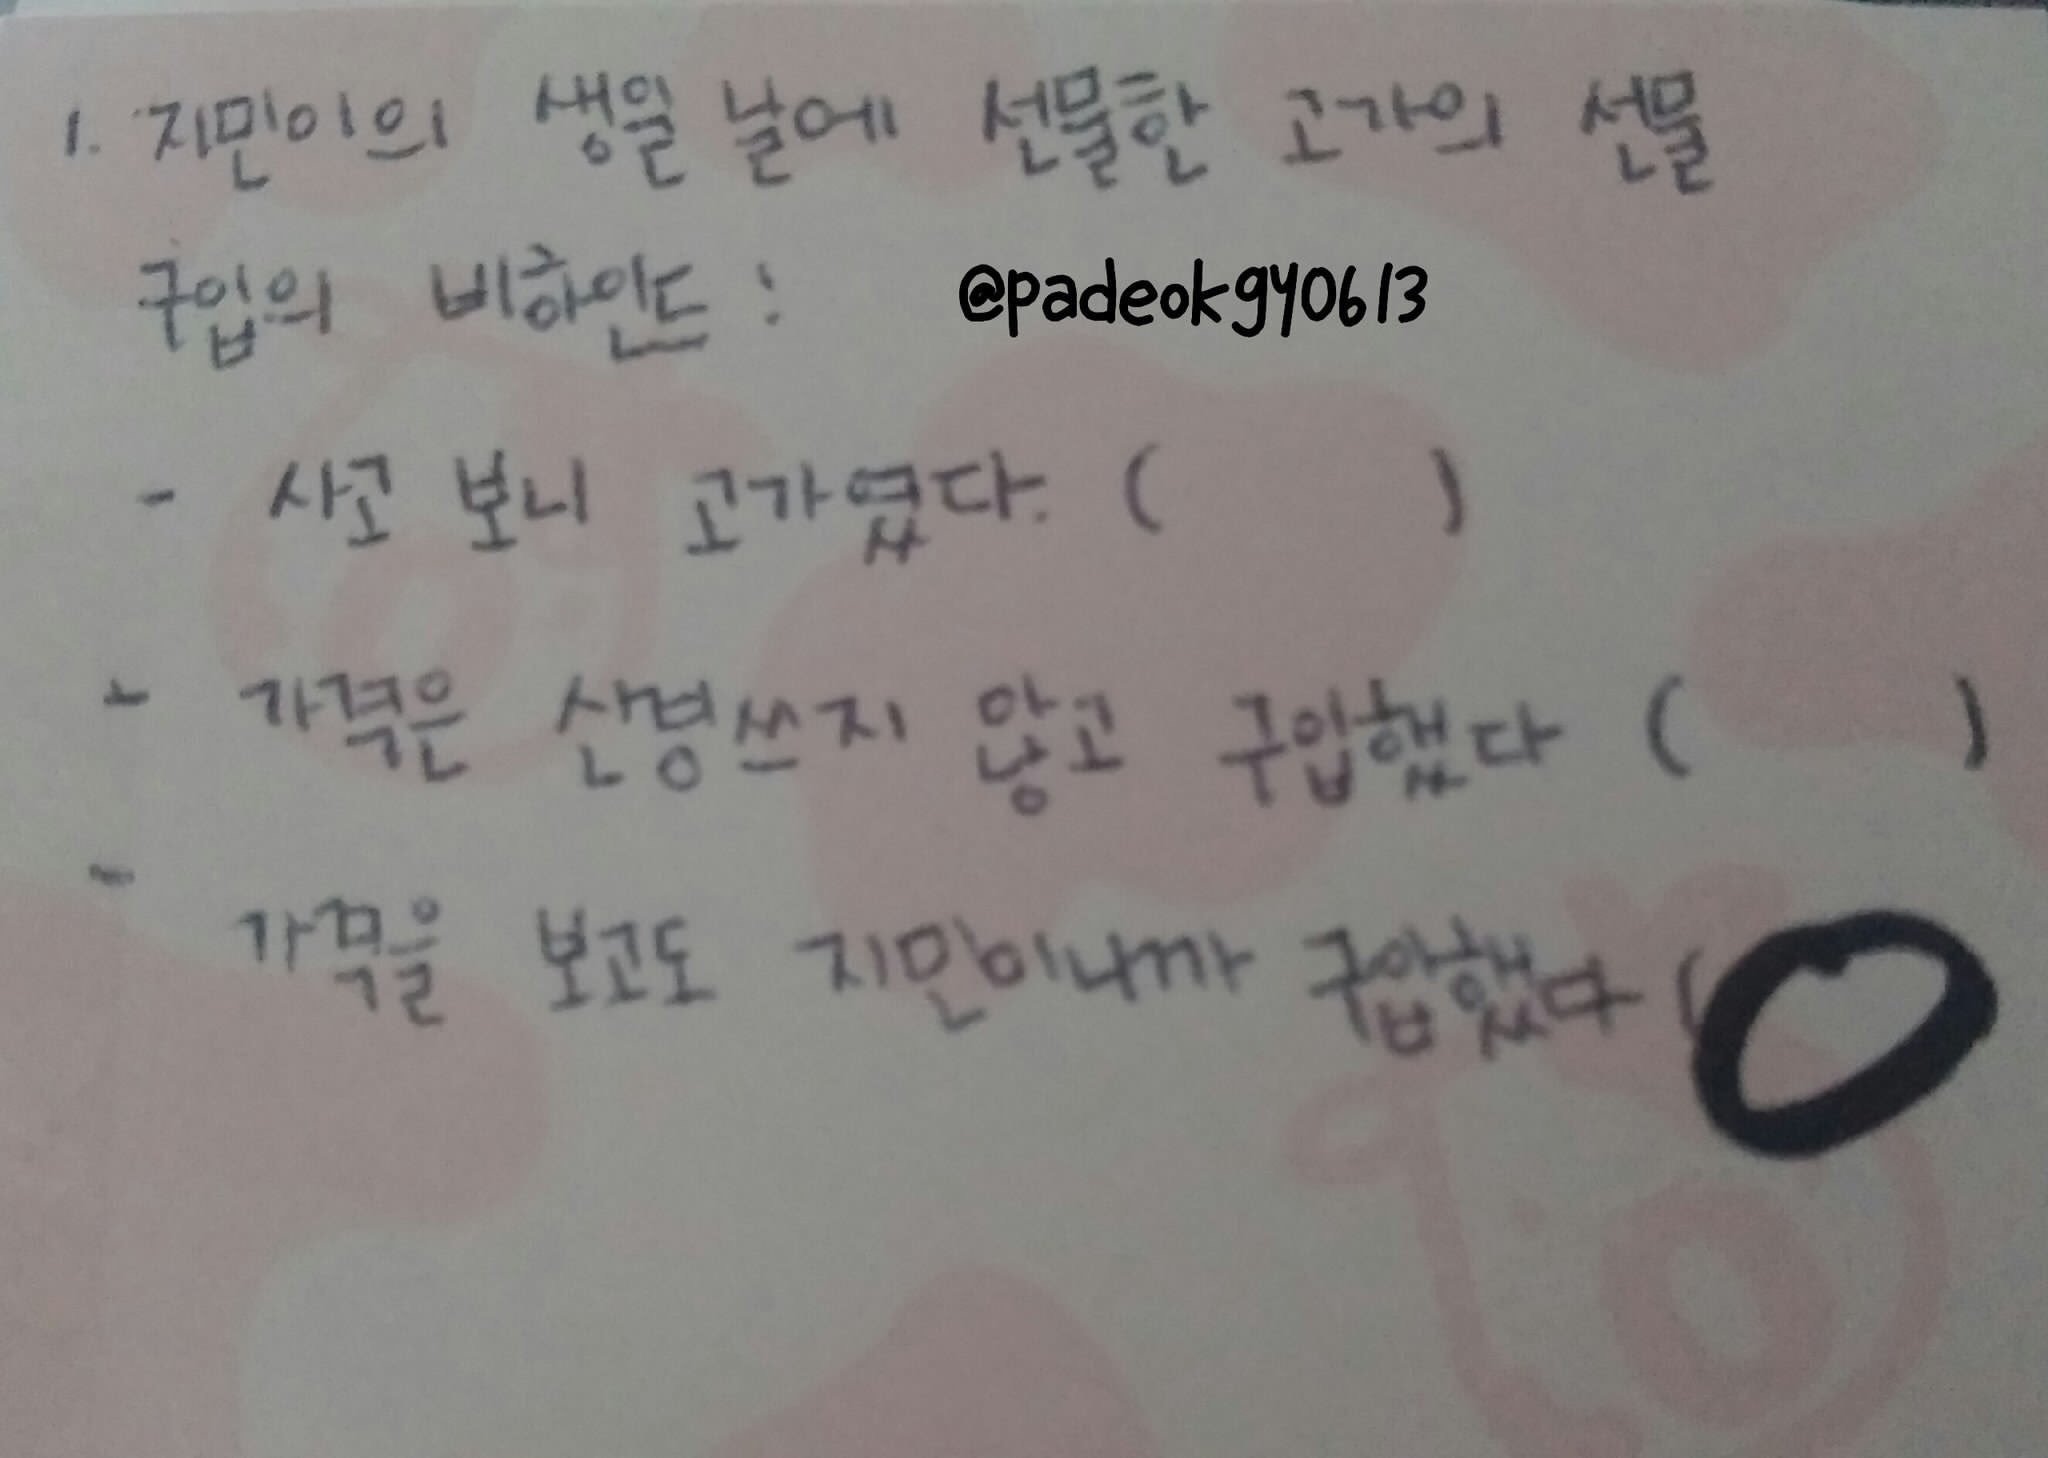 1. 지민이의 생일 날에 선물한 고가의 선물
구입의 비하인드 : @padeokgy0613
- 사고 보니 고가였다. ( )
- 가격은 신경쓰지 않고 구입했다 ( )
- 가격을 보고도 지민이니까 구입했다 (O